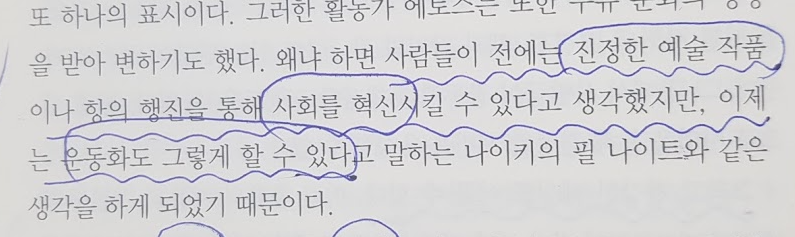 또 하나의 표시이다. 그러한 활동가 에토스는 또한
을 받아 변하기도 했다. 왜냐 하면 사람들이 전에는 진정한 예술 작품
이나 항의 행진을 통해 사회를 혁신시킬 수 있다고 생각했지만, 이제
는 운동화도 그렇게 할 수 있다고 말하는 나이키의 필 나이트와 같은
생각을 하게 되었기 때문이다.